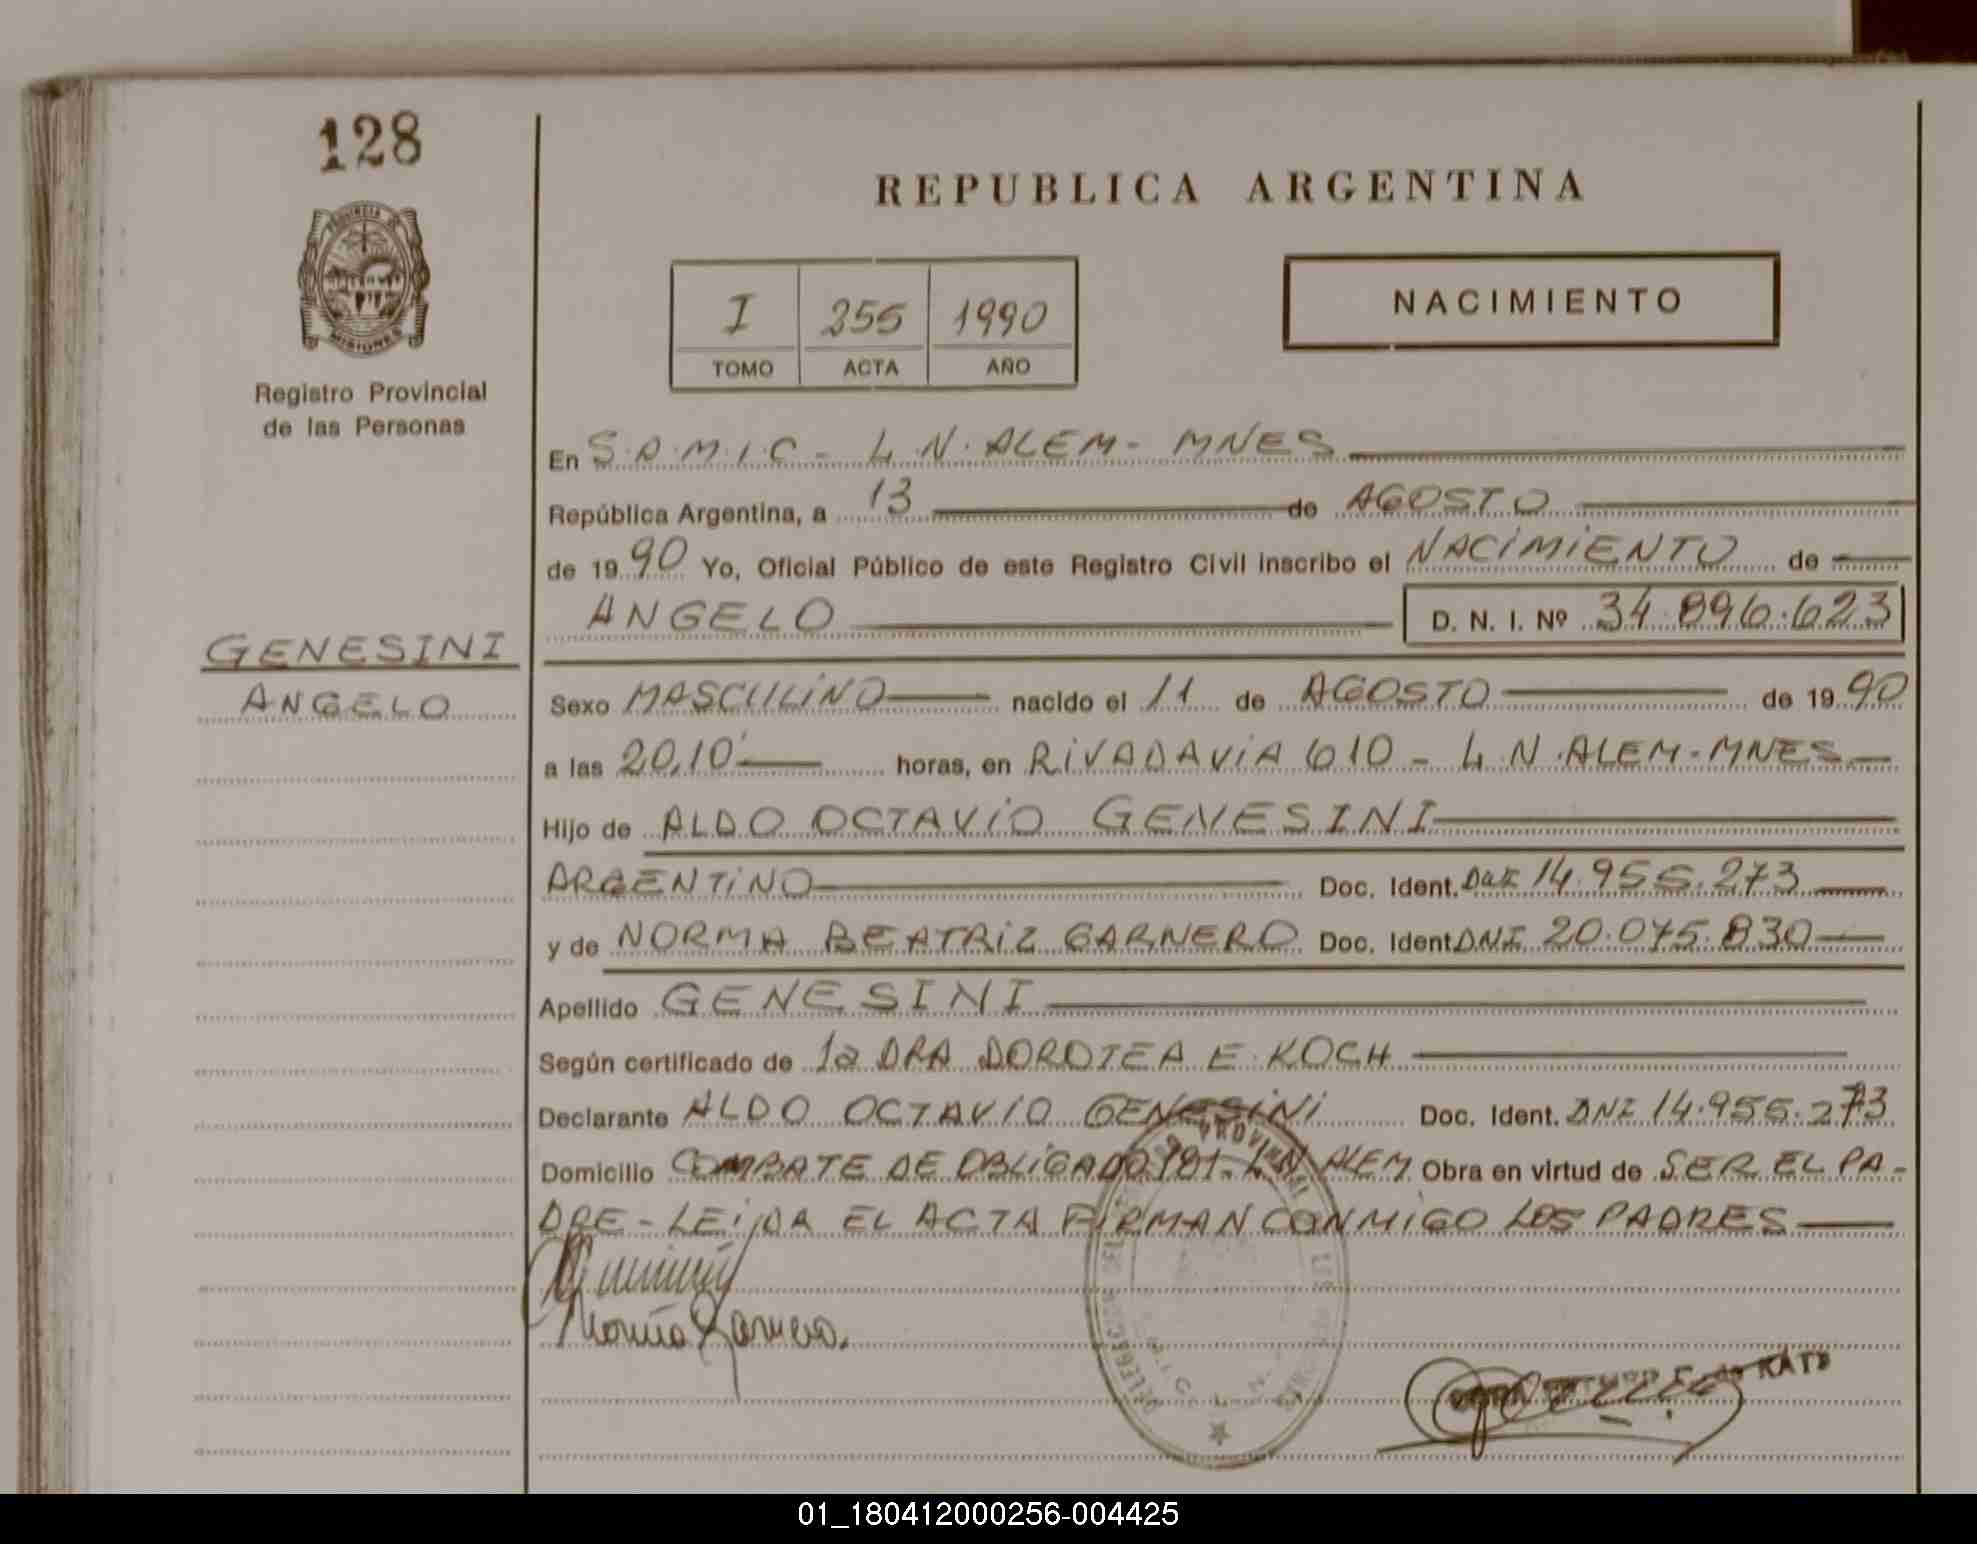 128
REPUBLICA ARGENTINA
PROVINCIA DE
MISIONES
Registro Provincial
de las Personas
I 255 1990
TOMO ACTA AÑO
NACIMIENTO
En S.A.M.I.C - L.N. ALEM - MNES
República Argentina, a 13 de AGOSTO
de 1990 Yo, Oficial Público de este Registro Civil inscribo el NACIMIENTO de
ANGELO D. N. I. Nº 34.896.623
GENESINI
ANGELO
Sexo MASCULINO nacido el 11 de AGOSTO de 1990
a las 20,10' horas, en RIVADAVIA 610 - L N. ALEM - MNES
Hijo de ALDO OCTAVIO GENESINI
ARGENTINO Doc. Ident. DNI 14.955.273
y de NORMA BEATRIZ GARNERO Doc. Ident DNI 20.075.830
Apellido GENESINI
Según certificado de la DRA DOROTEA E. KOCH
Declarante ALDO OCTAVIO GENESINI Doc. Ident. DNI 14.955.273
Domicilio COMBATE DE OBLIGADO 181 - L N ALEM Obra en virtud de SER EL PA-
DRE - LEIDA EL ACTA FIRMAN CONMIGO LOS PADRES
Norma Garnero.
01_180412000256-004425